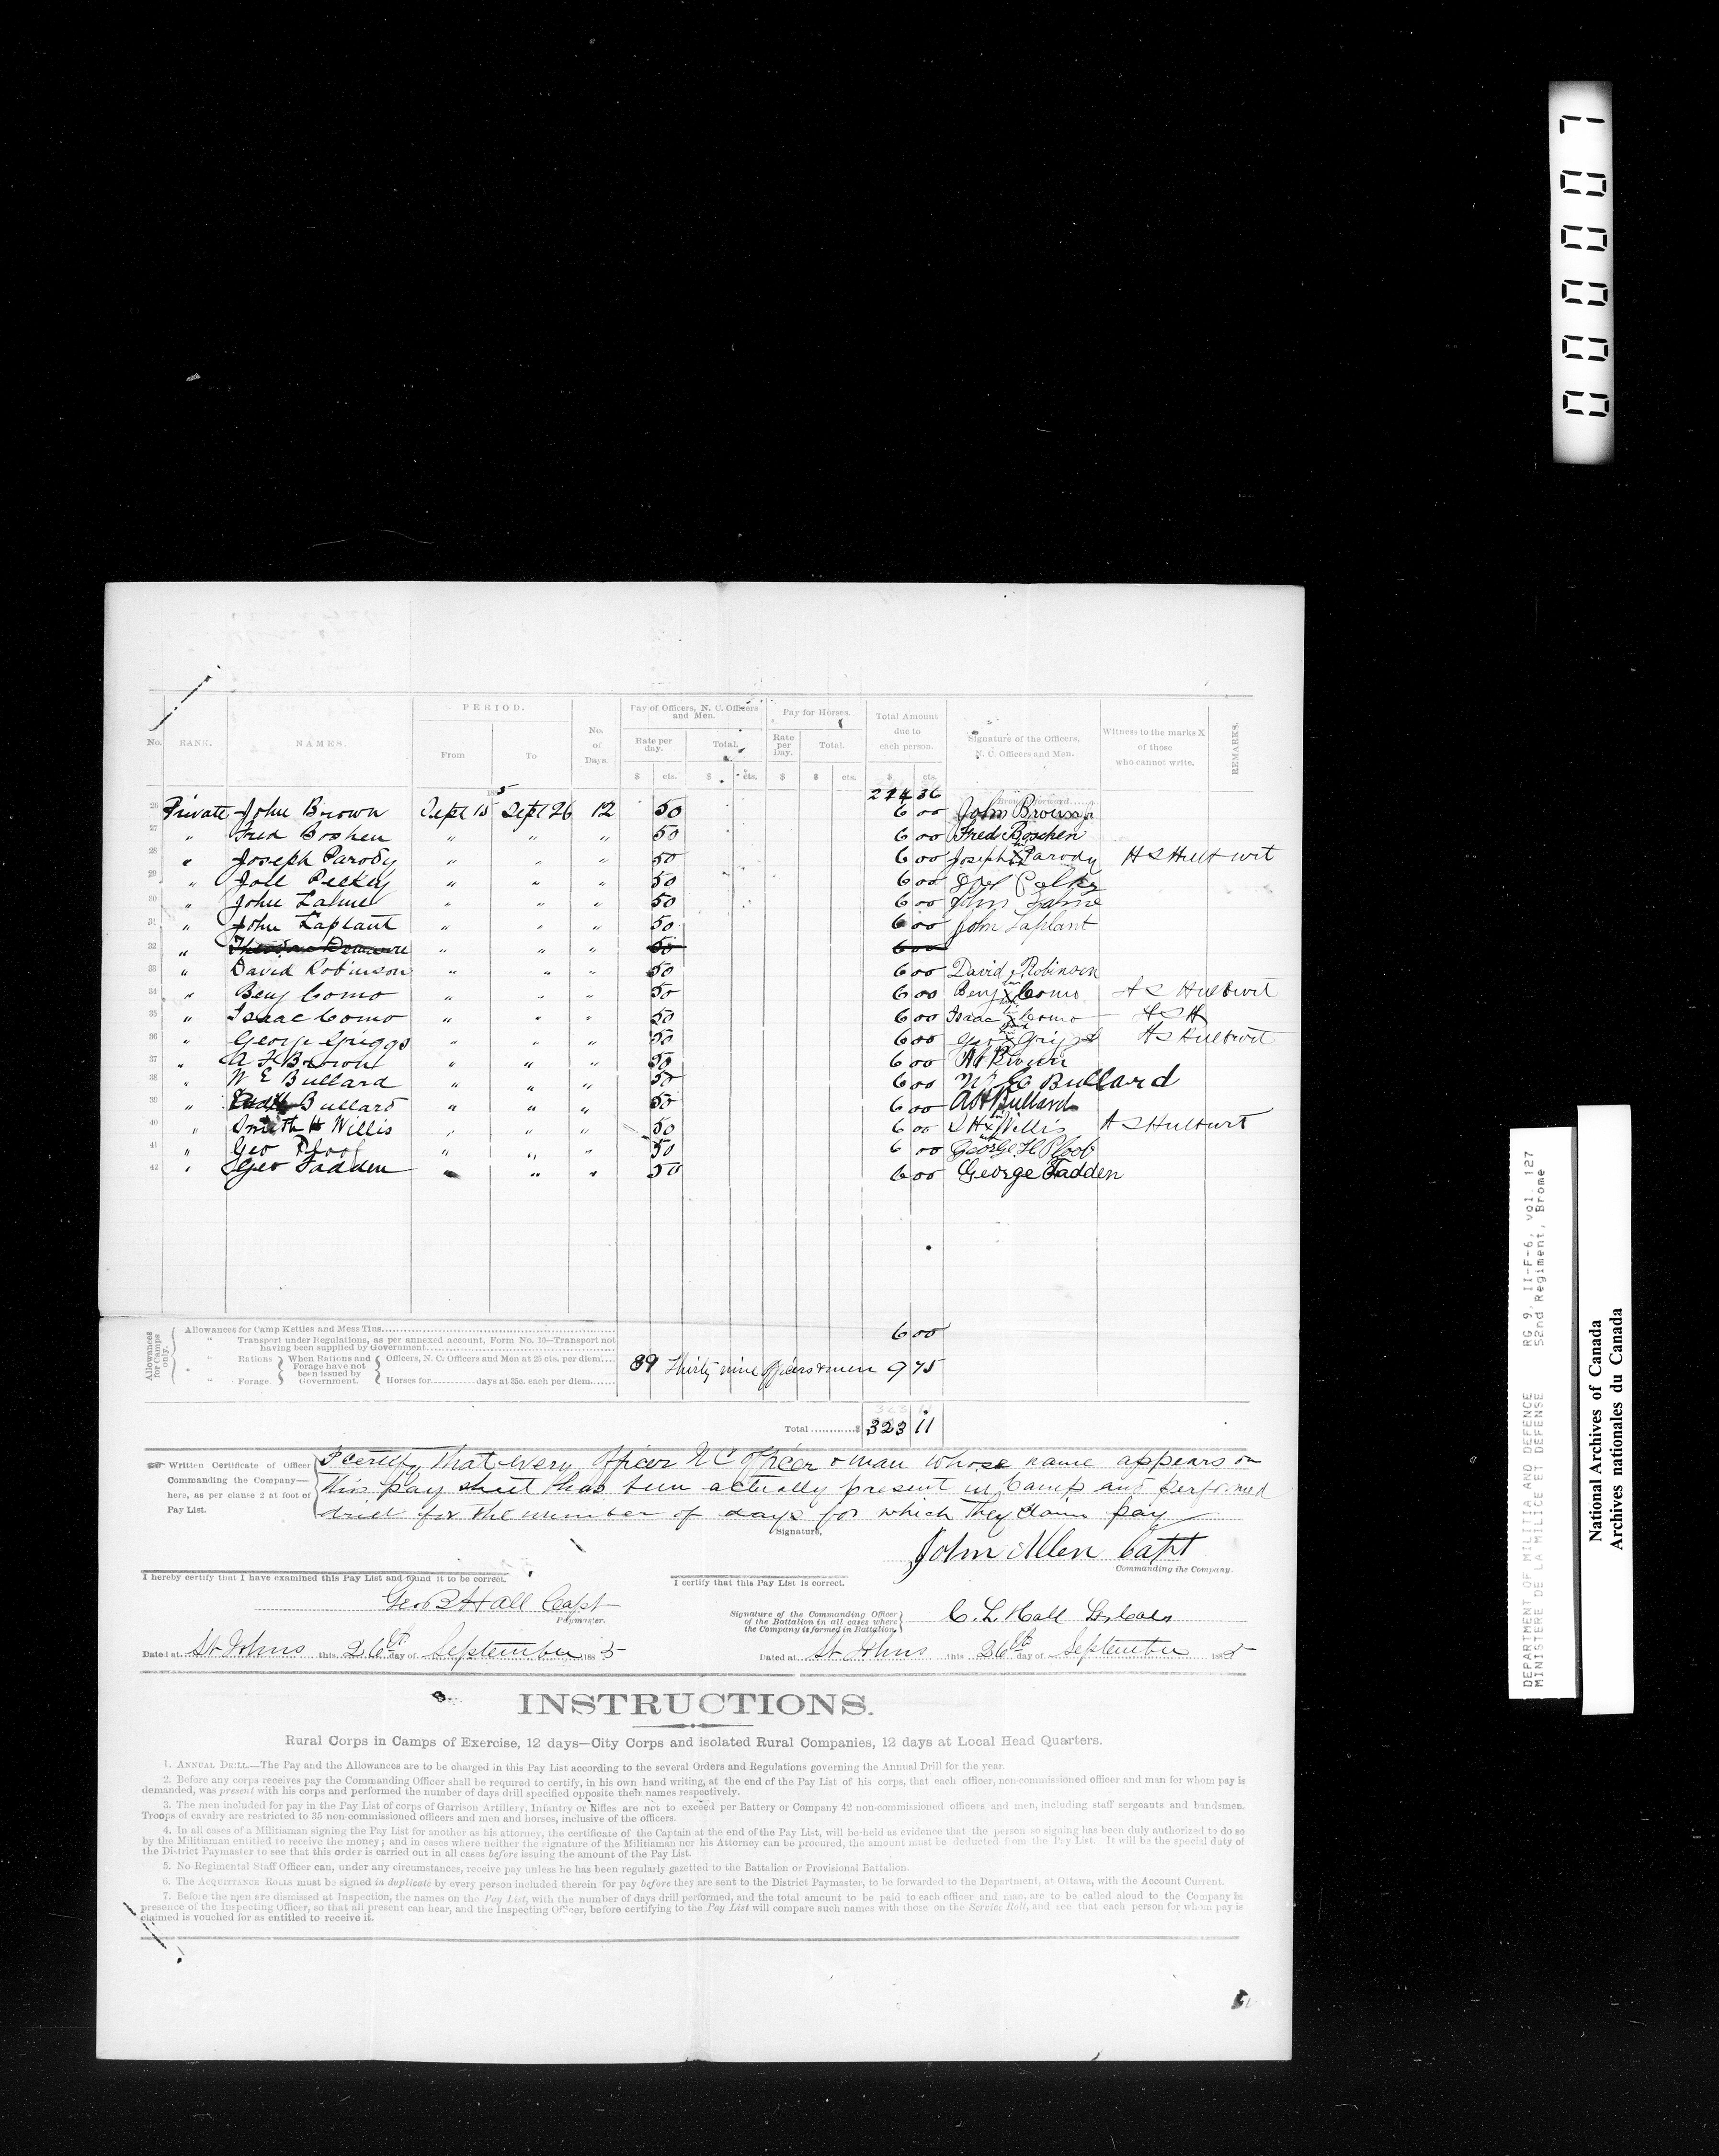 00007
PERIOD.
Pay of Officers, N. C. Officers and Men.
Pay for Horses.
Total Amount due to each person.
Signature of the Officers, N. C. Officers and Men.
Witness to the marks X of those who cannot write.
REMARKS.
No. RANK. NAMES. From To No. of Days. Rate per day. Total. Rate per Day. Total.
$ cts. $ cts. $ $ cts. $ cts.
5
Brought forward 36
26 Private John Brown Sept 15 Sept 26 12 50 6 00 John Brown
27 " Fred Boshen " " " 50 6 00 Fred Boschen
28 " Joseph Parody " " " 50 6 00 Joseph X Parody H S Hulburt
29 " Joel Pelkey " " " 50 6 00 Joel Pelky
30 " John Lahue " " " 50 6 00 John Lahue
31 " John Laplant " " " 50 6 00 John Laplant
32 " " " " 50 6 00
33 " David Robinson " " " 50 6 00 David Robinson
34 " Benj Como " " " 50 6 00 Benj X Como H S Hulburt
35 " Isaac Como " " " 50 6 00 Isaac X Como H S H
36 " George Griggs " " " 50 6 00 Geo X Griggs H S Hulburt
37 " A F Brown " " " 50 6 00 A F Brown
38 " W E Bullard " " " 50 6 00 W E Bullard
39 " Bullard " " " 50 6 00 A H Bullard
40 " Smith H Willis " " " 50 6 00 S H X Willis H S Hulburt
41 " Geo Ploof " " " 50 6 00 George H Ploof
42 " Geo Fadden " " " 50 6 00 George Fadden
Allowances for Camps only.
Allowances for Camp Kettles and Mess Tins 6 00
" Transport under Regulations, as per annexed account, Form No. 10—Transport not having been supplied by Government
" Rations When Rations and Forage have not been issued by Government. Officers, N. C. Officers and Men at 25 cts. per diem 39 Thirty nine officers & men 9 75
" Forage. Horses for days at 35c. each per diem
Total $ 323 11
Written Certificate of Officer Commanding the Company—here, as per clause 2 at foot of Pay List.
I certify that every officer N C officer & man whose name appears on
this pay sheet has been actually present in Camp and performed
drill for the number of days for which they claim pay
Signature,
John Allen Capt
Commanding the Company.
I hereby certify that I have examined this Pay List and found it to be correct.
I certify that this Pay List is correct.
Geo B Hall Capt
Paymaster.
Signature of the Commanding Officer of the Battalion in all cases where the Company is formed in Battalion.
C. L. Hall Lt Col
Dated at St Johns this 26th day of September 1885
Dated at St Johns this 26th day of September 1885
INSTRUCTIONS.
Rural Corps in Camps of Exercise, 12 days—City Corps and isolated Rural Companies, 12 days at Local Head Quarters.
1. ANNUAL DRILL.—The Pay and the Allowances are to be charged in this Pay List according to the several Orders and Regulations governing the Annual Drill for the year.
2. Before any corps receives pay the Commanding Officer shall be required to certify, in his own hand writing, at the end of the Pay List of his corps, that each officer, non-commissioned officer and man for whom pay is
demanded, was present with his corps and performed the number of days drill specified opposite their names respectively.
3. The men included for pay in the Pay List of corps of Garrison Artillery, Infantry or Rifles are not to exceed per Battery or Company 42 non-commissioned officers and men, including staff sergeants and bandsmen.
Troops of cavalry are restricted to 35 non-commissioned officers and men and horses, inclusive of the officers.
4. In all cases of a Militiaman signing the Pay List for another as his attorney, the certificate of the Captain at the end of the Pay List, will be held as evidence that the person so signing has been duly authorized to do so
by the Militiaman entitled to receive the money; and in cases where neither the signature of the Militiaman nor his Attorney can be procured, the amount must be deducted from the Pay List. It will be the special duty of
the District Paymaster to see that this order is carried out in all cases before issuing the amount of the Pay List.
5. No Regimental Staff Officer can, under any circumstances, receive pay unless he has been regularly gazetted to the Battalion or Provisional Battalion.
6. The ACQUITTANCE ROLLS must be signed in duplicate by every person included therein for pay before they are sent to the District Paymaster, to be forwarded to the Department, at Ottawa, with the Account Current.
7. Before the men are dismissed at Inspection, the names on the Pay List, with the number of days drill performed, and the total amount to be paid to each officer and man, are to be called aloud to the Company in
presence of the Inspecting Officer, so that all present can hear, and the Inspecting Officer, before certifying to the Pay List will compare such names with those on the Service Roll, and see that each person for whom pay is
claimed is vouched for as entitled to receive it.
DEPARTMENT OF MILITIA AND DEFENCE RG 9, II-F-6, vol. 127
MINISTERE DE LA MILICE ET DEFENSE 52nd Regiment, Brome
National Archives of Canada
Archives nationales du Canada